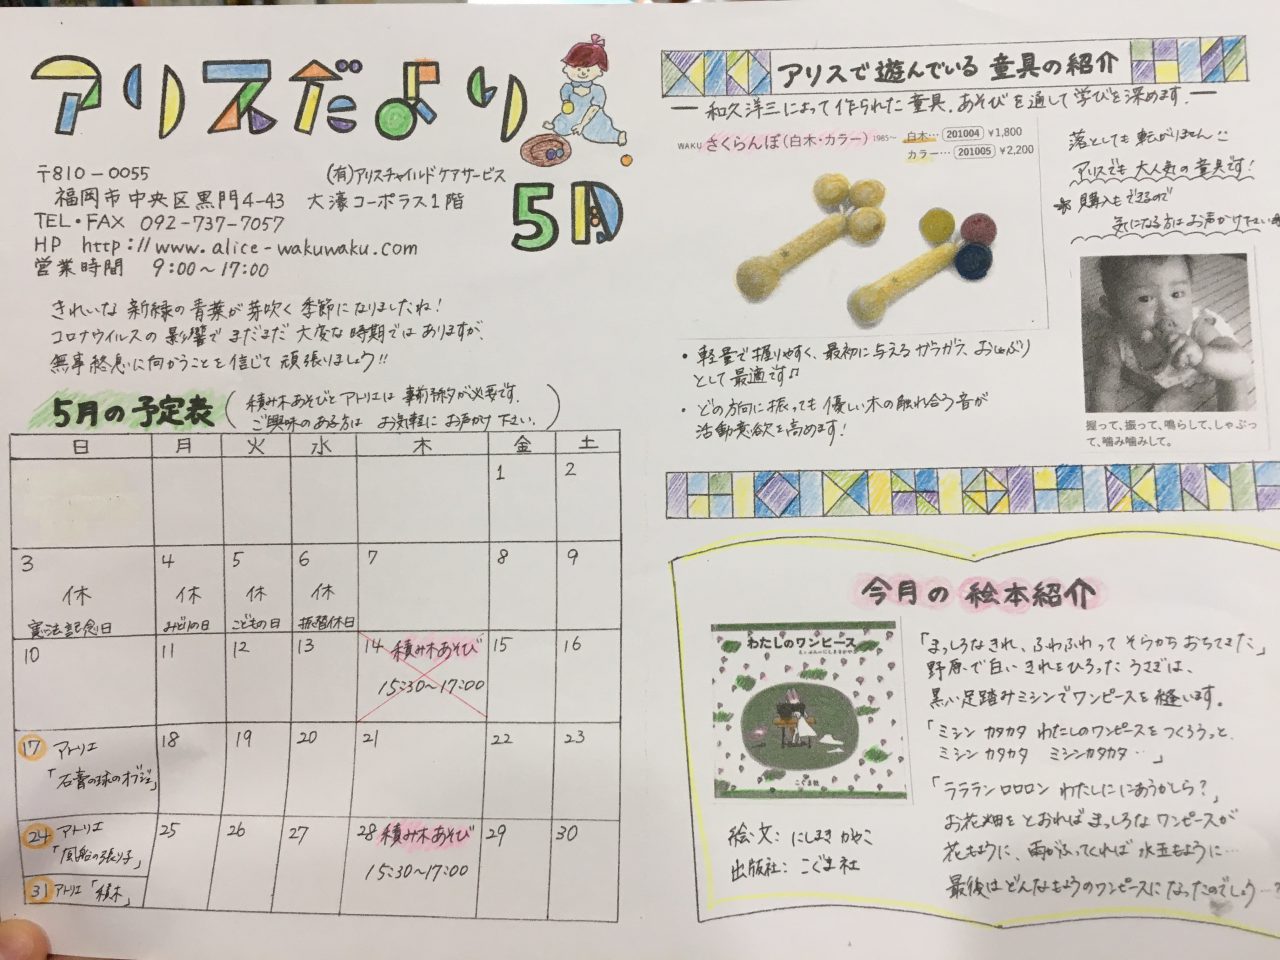 アリスだより
5月
〒810-0055 (有)アリスチャイルドケアサービス
福岡市中央区黒門4-43 大濠コーポラス1階
TEL・FAX 092-737-7057
HP http://www.alice-wakuwaku.com
営業時間 9:00〜17:00
きれいな新緑の青葉が芽吹く季節になりましたね!
コロナウイルスの影響でまだまだ大変な時期ではありますが、
無事終息に向かうことを信じて頑張りましょう!!
5月の予定表
(積み木あそびとアトリエは事前予約が必要です。
ご興味のある方はお気軽にお声かけ下さい。)
日 月 火 水 木 金 土
1 2
3 4 5 6 7 8 9
休 休 休 休
憲法記念日 みどりの日 こどもの日 振替休日
10 11 12 13 14 積み木あそび 15 16
15:30〜17:00
17 アトリエ 18 19 20 21 22 23
「石膏の球のオブジェ」
24 アトリエ 25 26 27 28 積み木あそび 29 30
「風船の張り子」
15:30〜17:00
31 アトリエ「積木」
アリスで遊んでいる童具の紹介
ー和久洋三によって作られた童具。あそびを通して学びを深めます。ー
WAKU さくらんぼ(白木・カラー) 1985〜 白木… 201004 ¥1,800
カラー… 201005 ¥2,200
落としても転がりません
アリスでも大人気の童具です!
購入もできるので
気になる方はお声かけ下さい
・軽量で握りやすく、最初に与えるガラガラ、おしゃぶり
として最適です♫
・どの方向に振っても優しい木の触れ合う音が
活動意欲を高めます!
握って、振って、鳴らして、しゃぶっ
て、噛み噛みして。
今月の絵本紹介
わたしのワンピース
えとぶん・にしまきかやこ
こぐま社
「まっしろなきれ、ふわふわって そらから おちてきた」
野原で白いきれをひろったうさぎは、
黒い足踏みミシンでワンピースを縫います。
「ミシン カタカタ わたしのワンピースをつくろうっと。
ミシン カタカタ ミシンカタカタ…」
「ラララン ロロロン わたしににあうかしら?」
お花畑をとおれば まっしろなワンピースが
花もように、雨がふってくれば 水玉もように…
最後はどんなもようのワンピースになったのでしょう…?
絵・文: にしまき かやこ
出版社: こぐま社